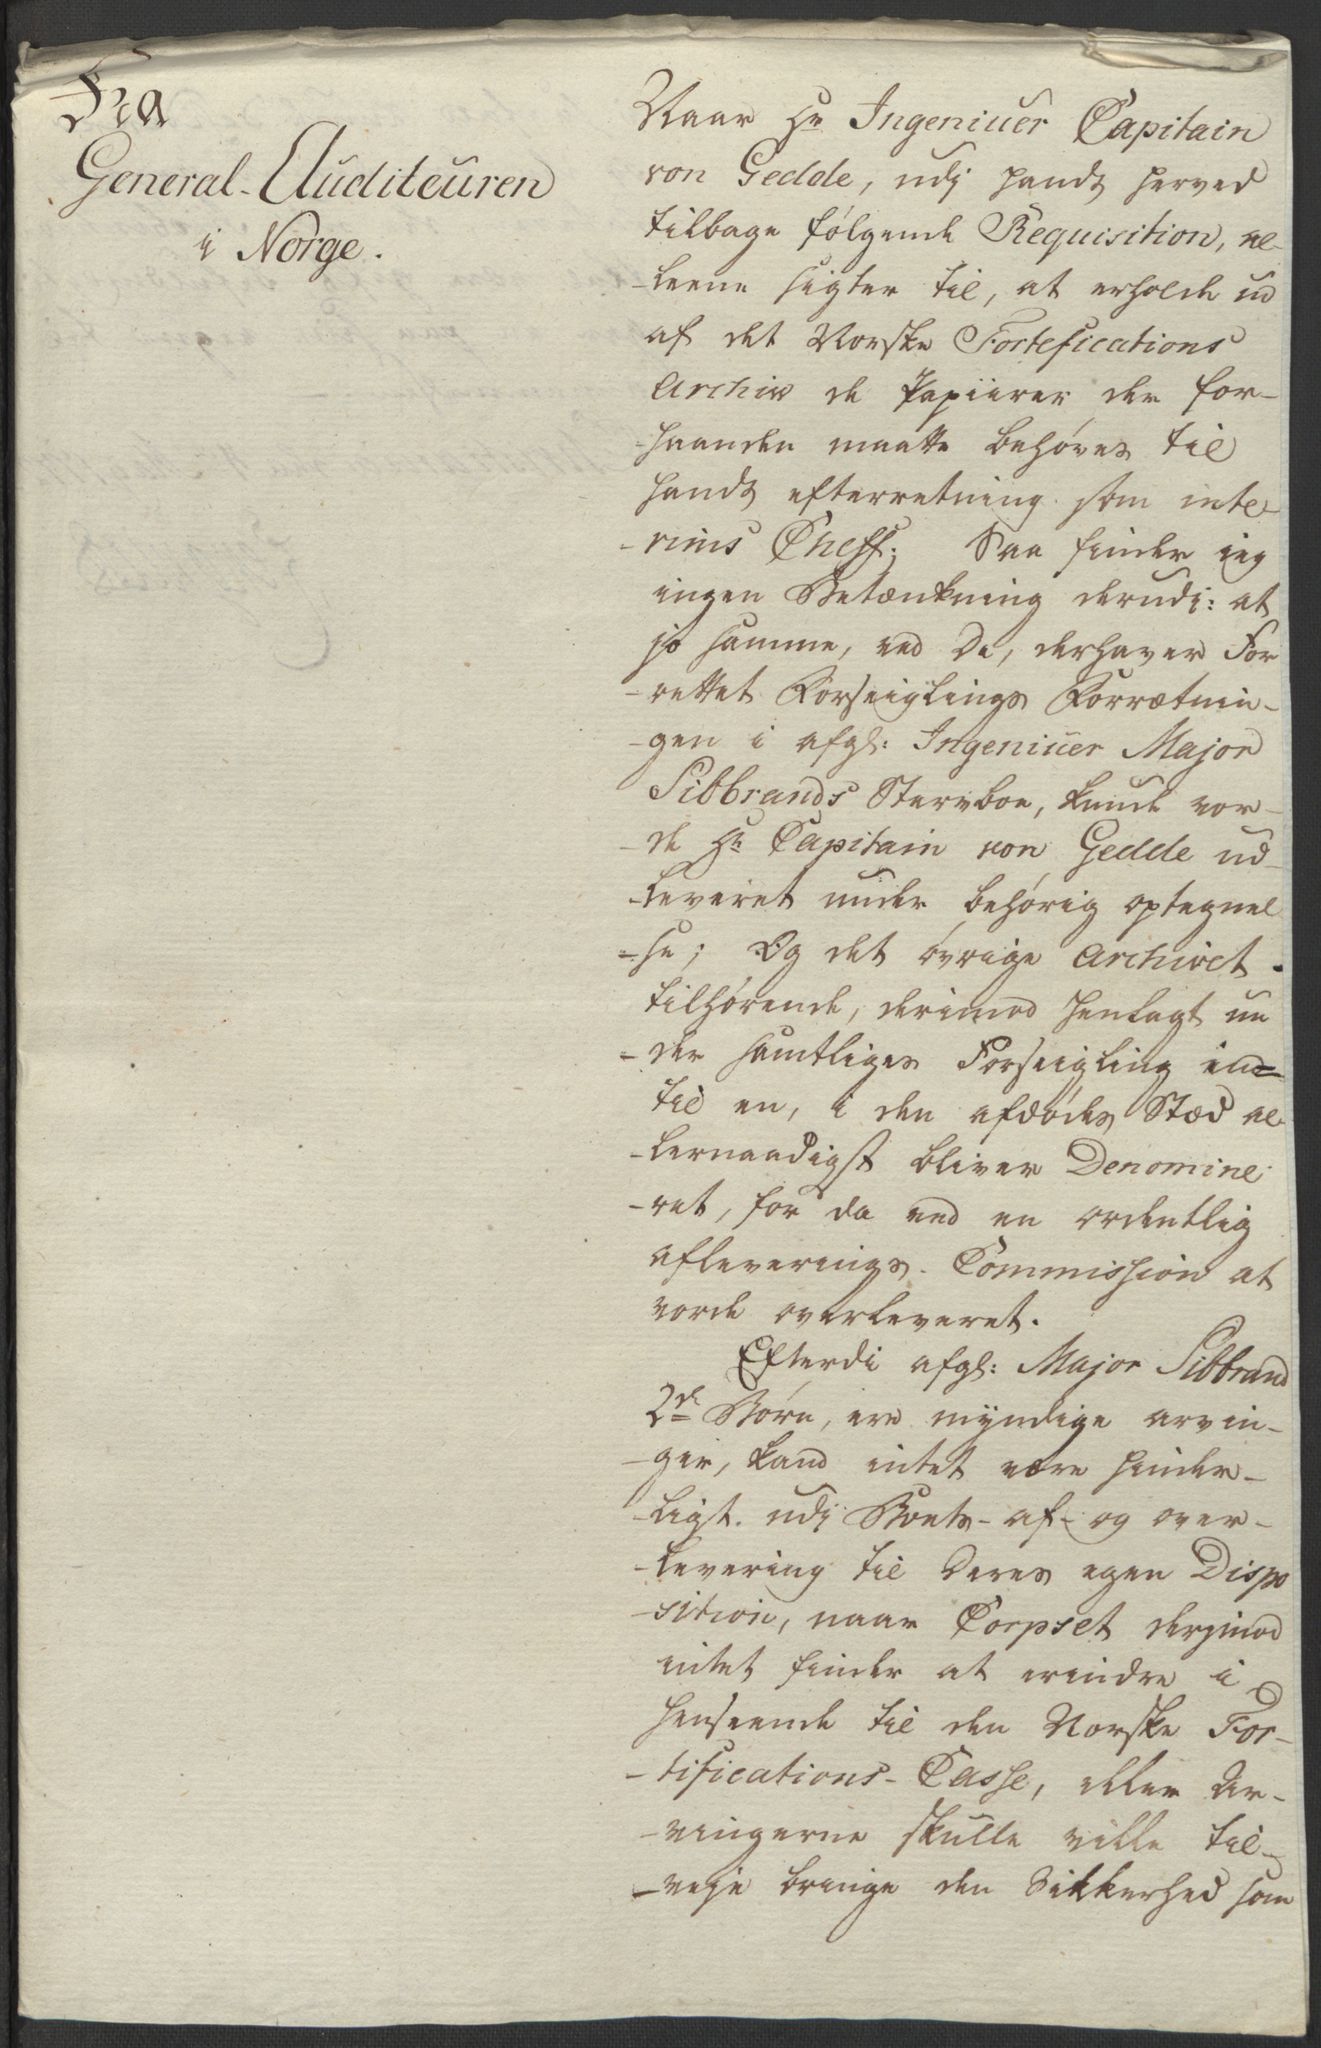 Fra
General-Auditeuren
i Norge.
Naar Hr Ingeniuer Capitain
von Gedde, udj hands herved
tilbage følgende Requisition, al-
-leene sigter til, at erholde ud
af det Norske Fortefications
Archiv de Papiirer der for-
-haanden maatte behøves til
hands efterretning som inte-
-rims Cheff; Saa finder jeg
ingen Betænkning derudi: at
jo samme, ved De, der haver For
-rettet Forseiglings Forrætnin-
-gen i afgl: Ingeniuer Major
Sibbrands Sterboe, kunde vor-
-de Hr Capitain von Gedde ud-
-leveret under behørig optegnel
-se; Og det øvrige Archivet
tilhørende, derimod henlagt un
-der samtliges Forseigling ind=
til en, i den afdødes Stæd al-
-lernaadigst bliver Denomine-
-ret, for da ved en ordentlig
afleverings-Commission at
vorde overleveret.
Efterdi afgl: Major Sibbrand
2de Børn, ere myndige arvin-
-ger, kand intet være hinder-
-ligt udj Boets-af-og over-
-levering til deres egen Dispo
-sition, naar Corpset derjmod
intet finder at erindre i
henseende til den Norske For-
-tifications-Casse, eller Ar-
-vingerne skulle ville til-
-veje bringe den Sikkerhed som